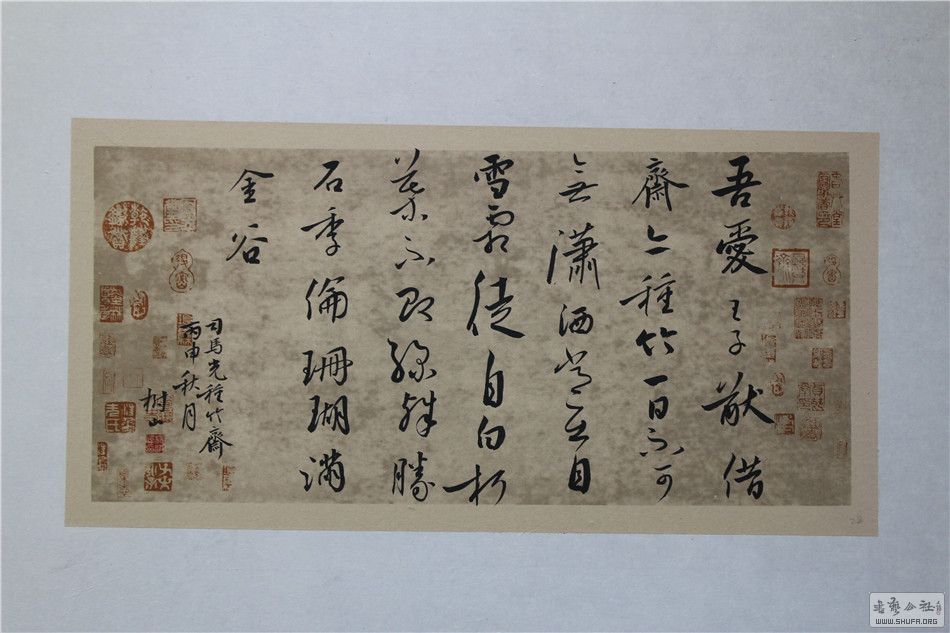 吾愛王子猷借
齋亦種竹一日不可
無瀟洒常在目
雪霜徒自白柯
葉不改綠殊勝
石季倫珊瑚滿
金谷
司馬光種竹齋
丙申秋月
樹山
書藝公社
WWW.SHUFA.ORG